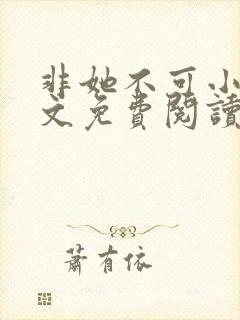 非她不可小
文免費閱讀
蕭有依